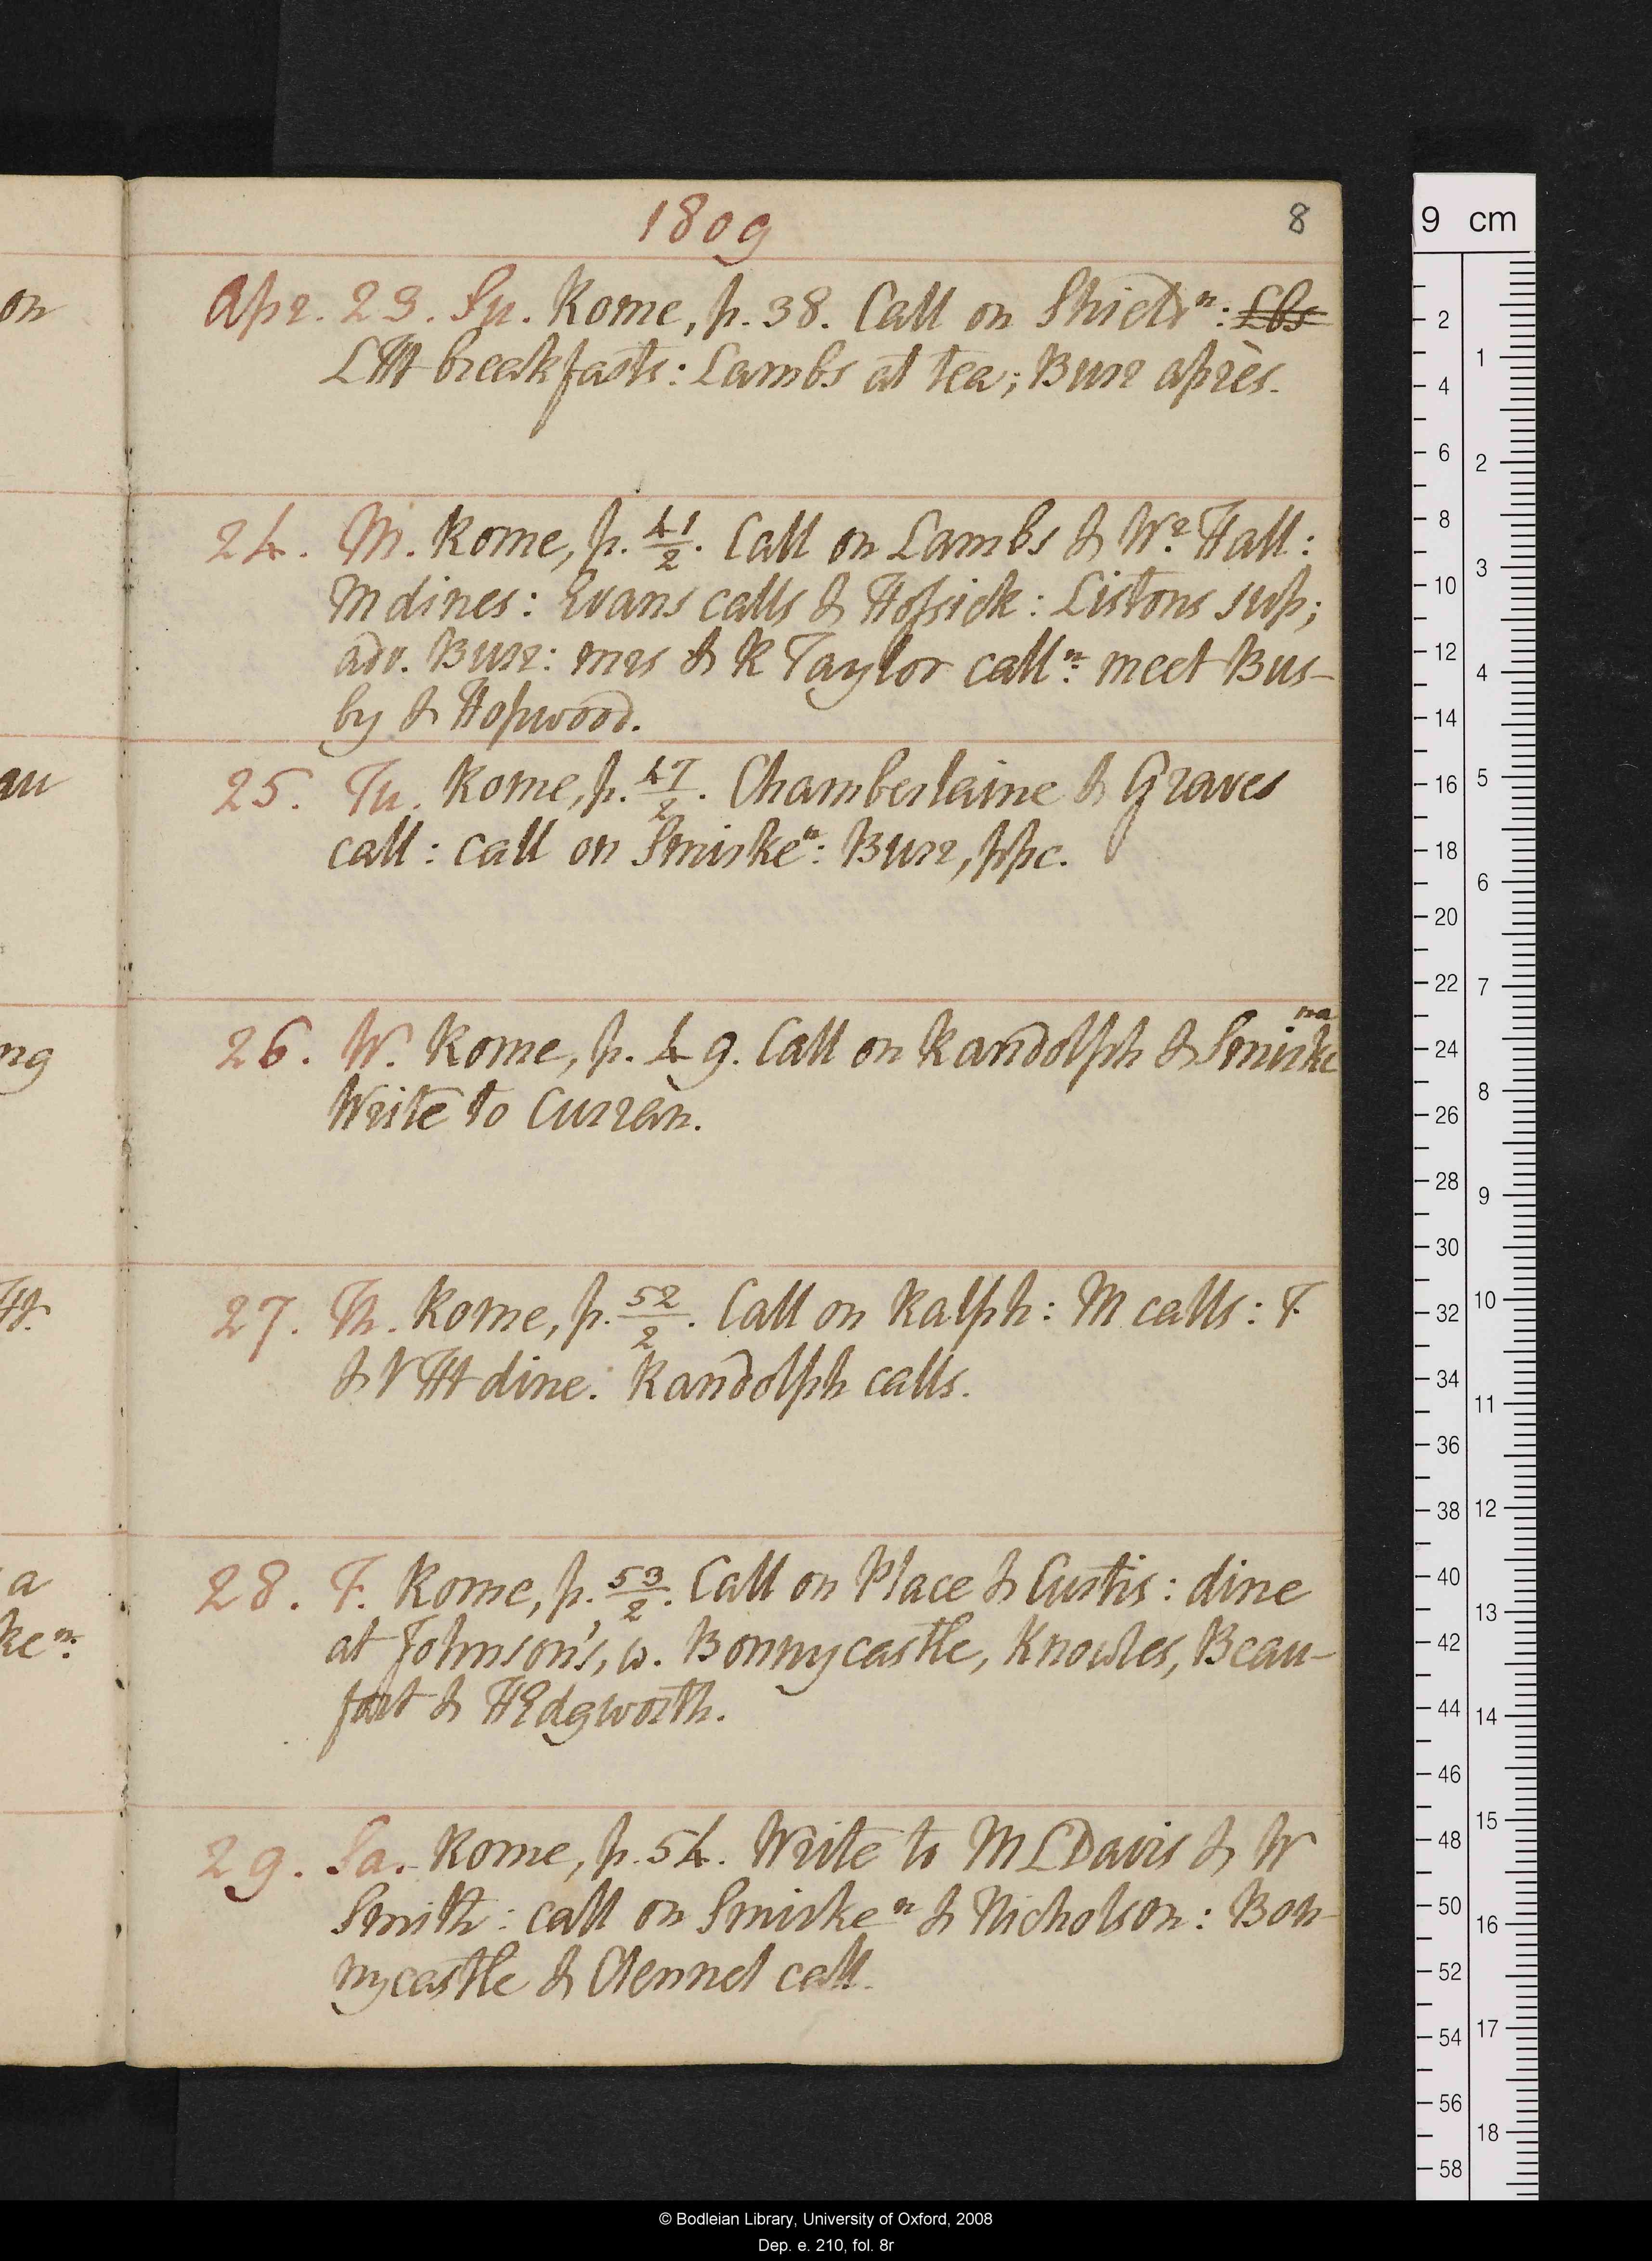 1809
8
Apr. 23. Su. Rome, p. 38. Call on Shield n: Lbs
LH breakfasts: Lambs at tea; Burr après.
24. M. Rome, p. 41/2. Call on Lambs & Wr. Hall:
M dines: Evans calls & Hossick: Listons sup;
adv. Burr: mrs & R Taylor call n: meet Bus-
by & Hopwood.
25. Tu. Rome, p. 47/2. Chamberlaine & Graves
call: call on Smirke n: Burr, ppc.
26. W. Rome, p. 49. Call on Randolph & Smirke na
Write to Curran.
27. Th. Rome, p. 52/2. Call on Ralph: M calls: F
& V H dine: Randolph calls.
28. F. Rome, p. 53/2. Call on Place & Curtis: dine
at Johnson's, w. Bonnycastle, Knowles, Beau-
fort & H Edgworth.
29. Sa. Rome, p. 54. Write to M L Davis & W
Smith: call on Smirke n & Nicholson: Bon-
nycastle & Clennel call.
on
au
ng
H.
a
ke n:
9 cm
2 4 6 8 10 12 14 16 18 20 22 24 26 28 30 32 34 36 38 40 42 44 46 48 50 52 54 56 58
1 2 3 4 5 6 7 8 9 10 11 12 13 14 15 16 17 18
© Bodleian Library, University of Oxford, 2008
Dep. e. 210, fol. 8r